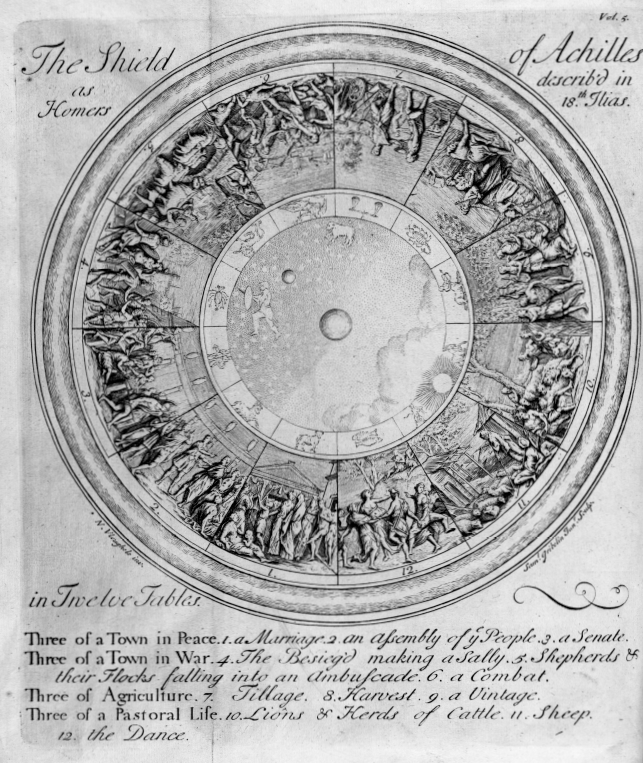 Vol. 5.
The Shield of Achilles
as describ'd in
Homers 18.th Ilias.
1.
2.
3.
4.
5.
6.
7.
8.
9.
10.
11.
12.
N. Vleughels inv.
Sam.l Gribelin Jun.r Sculp.
in Twelve Tables.
Three of a Town in Peace. 1. a Marriage. 2. an assembly of ye People. 3. a Senate.
Three of a Town in War. 4. The Besieg'd making a Sally. 5. Shepherds &
their Flocks falling into an Ambuscade. 6. a Combat.
Three of Agriculture. 7. Tillage. 8. Harvest. 9. a Vintage.
Three of a Pastoral Life. 10. Lions & Herds of Cattle. 11. Sheep.
12. the Dance.